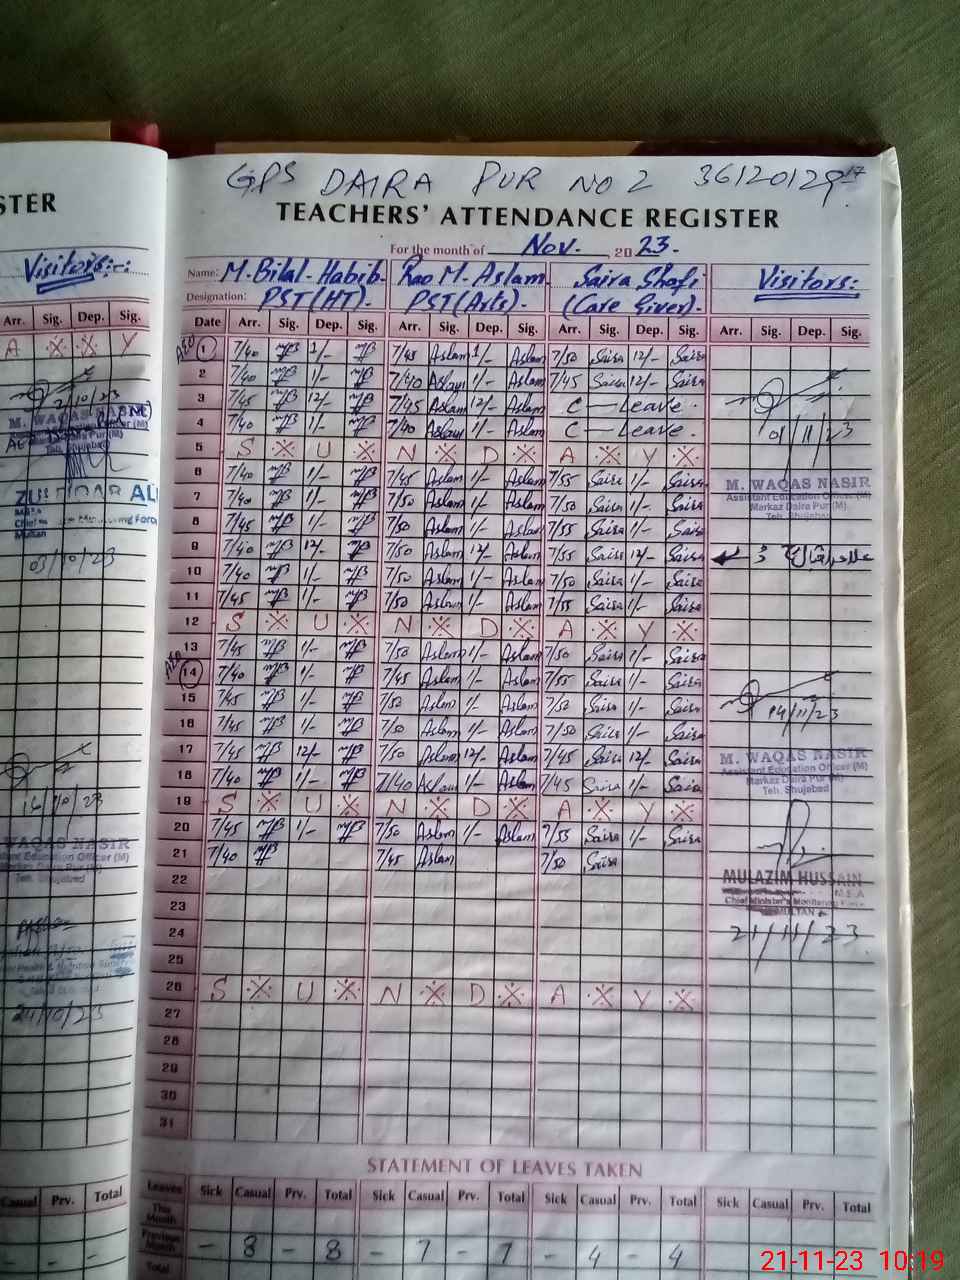 GPS DAIRA PUR NO 2 36120129
TEACHERS' ATTENDANCE REGISTER
For the month of Nov. 2023.
Name: M. Bilal Habib. Rao M. Aslam Saira Shafi Visitors:
Designation: PST(HT). PST(Arts). (Care Giver).
Date Arr. Sig. Dep. Sig. Arr. Sig. Dep. Sig. Arr. Sig. Dep. Sig. Arr. Sig. Dep. Sig.
AEO 1 7/40 1/- 7/45 Aslam 1/- Aslam 7/50 Saira 12/- Saira
2 7/40 1/- 7/40 Aslam 1/- Aslam 7/45 Saira 12/- Saira
3 7/45 12/- 7/45 Aslam 12/- Aslam C — Leave.
4 7/40 1/- 7/40 Aslam 1/- Aslam C — Leave.
5 S U N D A Y
6 7/40 1/- 7/45 Aslam 1/- Aslam 7/55 Saira 1/- Saira
7 7/40 1/- 7/50 Aslam 1/- Aslam 7/50 Saira 1/- Saira
8 7/45 1/- 7/50 Aslam 1/- Aslam 7/55 Saira 1/- Saira
9 7/40 12/- 7/50 Aslam 12/- Aslam 7/55 Saira 12/- Saira
10 7/40 1/- 7/50 Aslam 1/- Aslam 7/50 Saira 1/- Saira
11 7/45 1/- 7/50 Aslam 1/- Aslam 7/55 Saira 1/- Saira
12 S U N D A Y
13 7/45 1/- 7/50 Aslam 1/- Aslam 7/50 Saira 1/- Saira
AEO 14 7/40 1/- 7/45 Aslam 1/- Aslam 7/55 Saira 1/- Saira
15 7/45 1/- 7/50 Aslam 1/- Aslam 7/50 Saira 1/- Saira
16 7/45 1/- 7/50 Aslam 1/- Aslam 7/50 Saira 1/- Saira
17 7/45 12/- 7/50 Aslam 12/- Aslam 7/45 Saira 12/- Saira
18 7/40 1/- 7/40 Aslam 1/- Aslam 7/45 Saira 1/- Saira
19 S U N D A Y
20 7/45 1/- 7/50 Aslam 1/- Aslam 7/55 Saira 1/- Saira
21 7/40 7/45 Aslam 7/50 Saira
22
23
24
25
26 S U N D A Y
27
28
29
30
31
01/11/23
M. WAQAS NASIR
Assistant Education Officer (M)
Markaz Daira Pur (M)
Teh. Shujabad
14/11/23
M. WAQAS NASIR
Assistant Education Officer (M)
Markaz Daira Pur (M)
Teh. Shujabad
MULAZIM HUSSAIN
M.E.A
Chief Minister's Monitoring Force
MULTAN
21/11/23
STATEMENT OF LEAVES TAKEN
Leaves Sick Casual Prv. Total Sick Casual Prv. Total Sick Casual Prv. Total Sick Casual Prv. Total
This Month
Previous Month - 8 - 8 - 7 - 7 - 4 - 4
Total
STER
Visitors:
Arr. Sig. Dep. Sig.
A Y
2/10/23
M. WAQAS NASIR
Teh. Shujabad
Multan
03/10/23
16/10/23
WAQAS NASIR
Education Officer (M)
Teh. Shujabad
24/10/23
Casual Prv. Total
- -
21-11-23 10:19